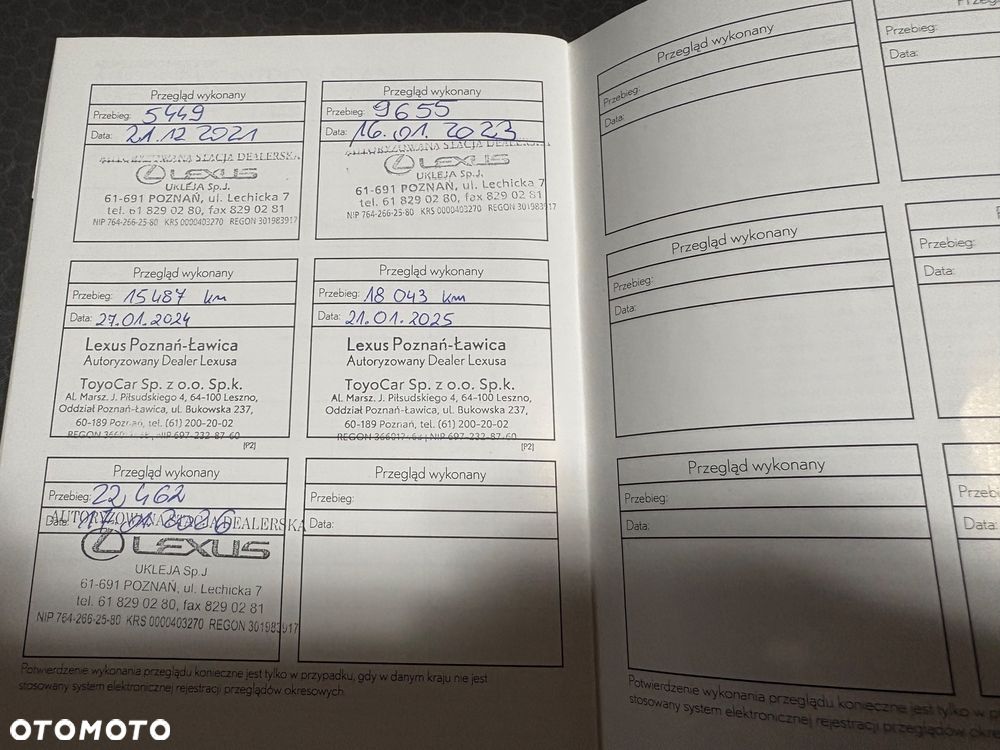 Przegląd wykonany
Przebieg: 5449
Data: 21.12.2021
AUTORYZOWANA STACJA DEALERSKA
LEXUS
UKLEJA Sp.J.
61-691 POZNAŃ, ul. Lechicka 7
tel. 61 829 02 80, fax 829 02 81
NIP 764-266-25-80 KRS 0000403270 REGON 301983917
Przegląd wykonany
Przebieg: 9655
Data: 16.01.2023
AUTORYZOWANA STACJA DEALERSKA
LEXUS
UKLEJA Sp.J.
61-691 POZNAŃ, ul. Lechicka 7
tel. 61 829 02 80, fax 829 02 81
NIP 764-266-25-80 KRS 0000403270 REGON 301983917
Przegląd wykonany
Przebieg: 15487 km
Data: 27.01.2024
Lexus Poznań-Ławica
Autoryzowany Dealer Lexusa
ToyoCar Sp. z o.o. Sp.k.
Al. Marsz. J. Piłsudskiego 4, 64-100 Leszno,
Oddział Poznań-Ławica, ul. Bukowska 237,
60-189 Poznań, tel. (61) 200-20-02
NIP 697-232-87-60
[P2]
Przegląd wykonany
Przebieg: 18 043 km
Data: 21.01.2025
Lexus Poznań-Ławica
Autoryzowany Dealer Lexusa
ToyoCar Sp. z o.o. Sp.k.
Al. Marsz. J. Piłsudskiego 4, 64-100 Leszno,
Oddział Poznań-Ławica, ul. Bukowska 237,
60-189 Poznań, tel. (61) 200-20-02
NIP 697-232-87-60
[P2]
Przegląd wykonany
Przebieg: 22,462
Data: 17.01.2026
AUTORYZOWANA STACJA DEALERSKA
LEXUS
UKLEJA Sp.J
61-691 POZNAŃ, ul. Lechicka 7
tel. 61 829 02 80, fax 829 02 81
NIP 764-266-25-80 KRS 0000403270 REGON 301983917
Przegląd wykonany
Przebieg:
Data:
Potwierdzenie wykonania przeglądu konieczne jest tylko w przypadku, gdy w danym kraju nie jest
stosowany system elektronicznej rejestracji przeglądów okresowych.
Przegląd wykonany
Przebieg:
Data:
Przebieg:
Data:
Przegląd wykonany
Przebieg:
Data:
Przebieg:
Data:
Przegląd wykonany
Przebieg:
Data:
Data:
Potwierdzenie wykonania przeglądu konieczne jest tylko w
stosowany system elektronicznej rejestracji przeglądów
OTOMOTO